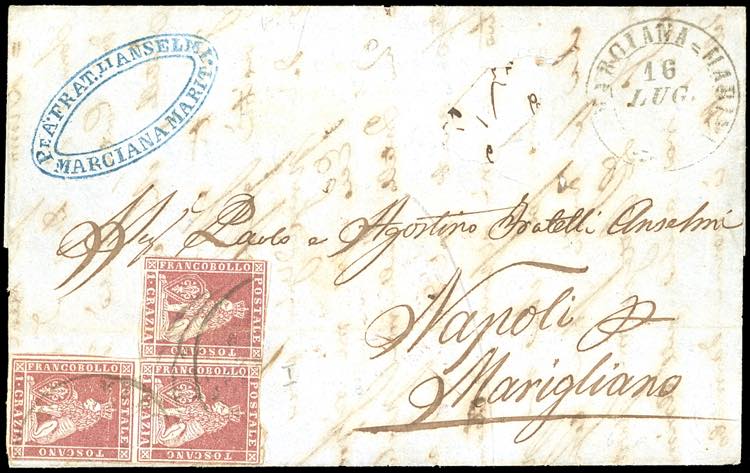 P. e A. FRAT.LLI ANSELMI
MARCIANA MARIT.
MARCIANA=MARINA
16
LUG.
Paolo e Agostino Fratelli Anselmi
Napoli p
Marigliano
FRANCOBOLLO
POSTALE
TOSCANO
1·CRAZIA
FRANCOBOLLO
POSTALE
TOSCANO
1·CRAZIA
POSTALE
TOSCANO
1·CRAZIA